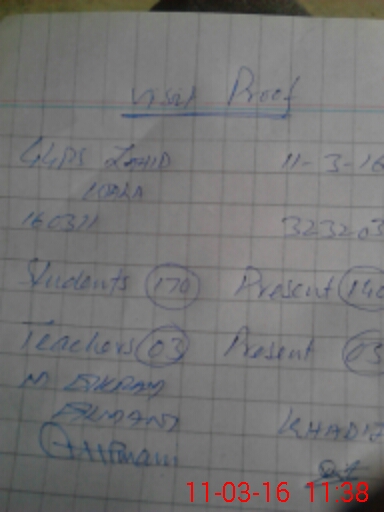 Visit Proof
GGPS ZAHID 11-3-16
WALA
160311 323203
Students 170 Present
Teachers 03 Present 03
M IKRAM
KHADIJ
11-03-16 11:38